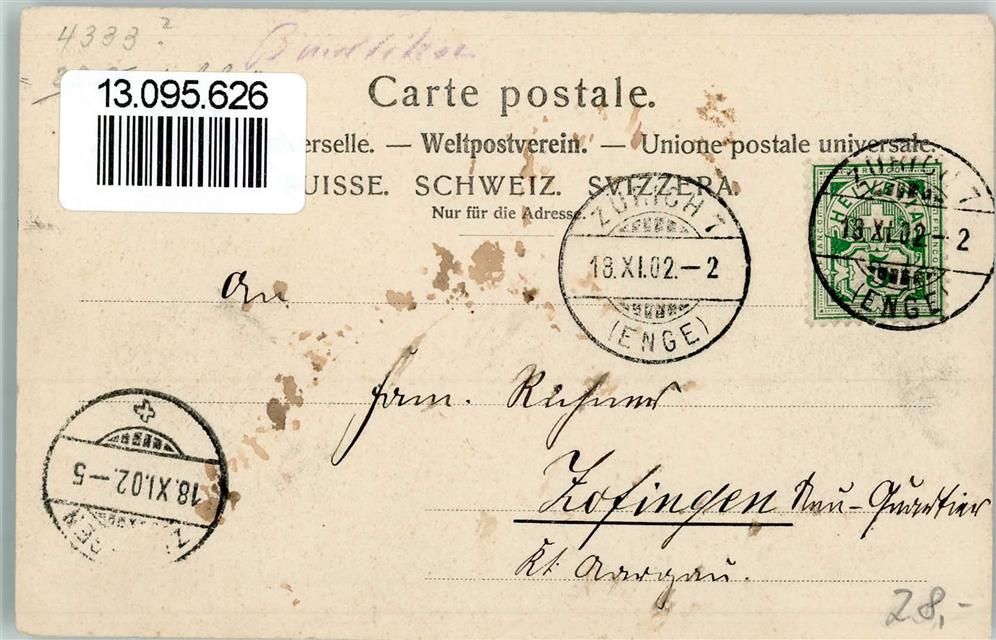 4333?
13.095.626
Carte postale.
erselle. — Weltpostverein. — Unione postale universale.
UISSE. SCHWEIZ. SVIZZERA.
Nur für die Adresse.
ZÜRICH 7
18.XI.02.–2
(ENGE)
ZÜRICH 7
18.XI.02.–2
(ENGE)
HELVETIA
5
An
Fam. Richner
Zofingen Neu-Quartier
Kt. Aargau.
18.XI.02.–5
28,-